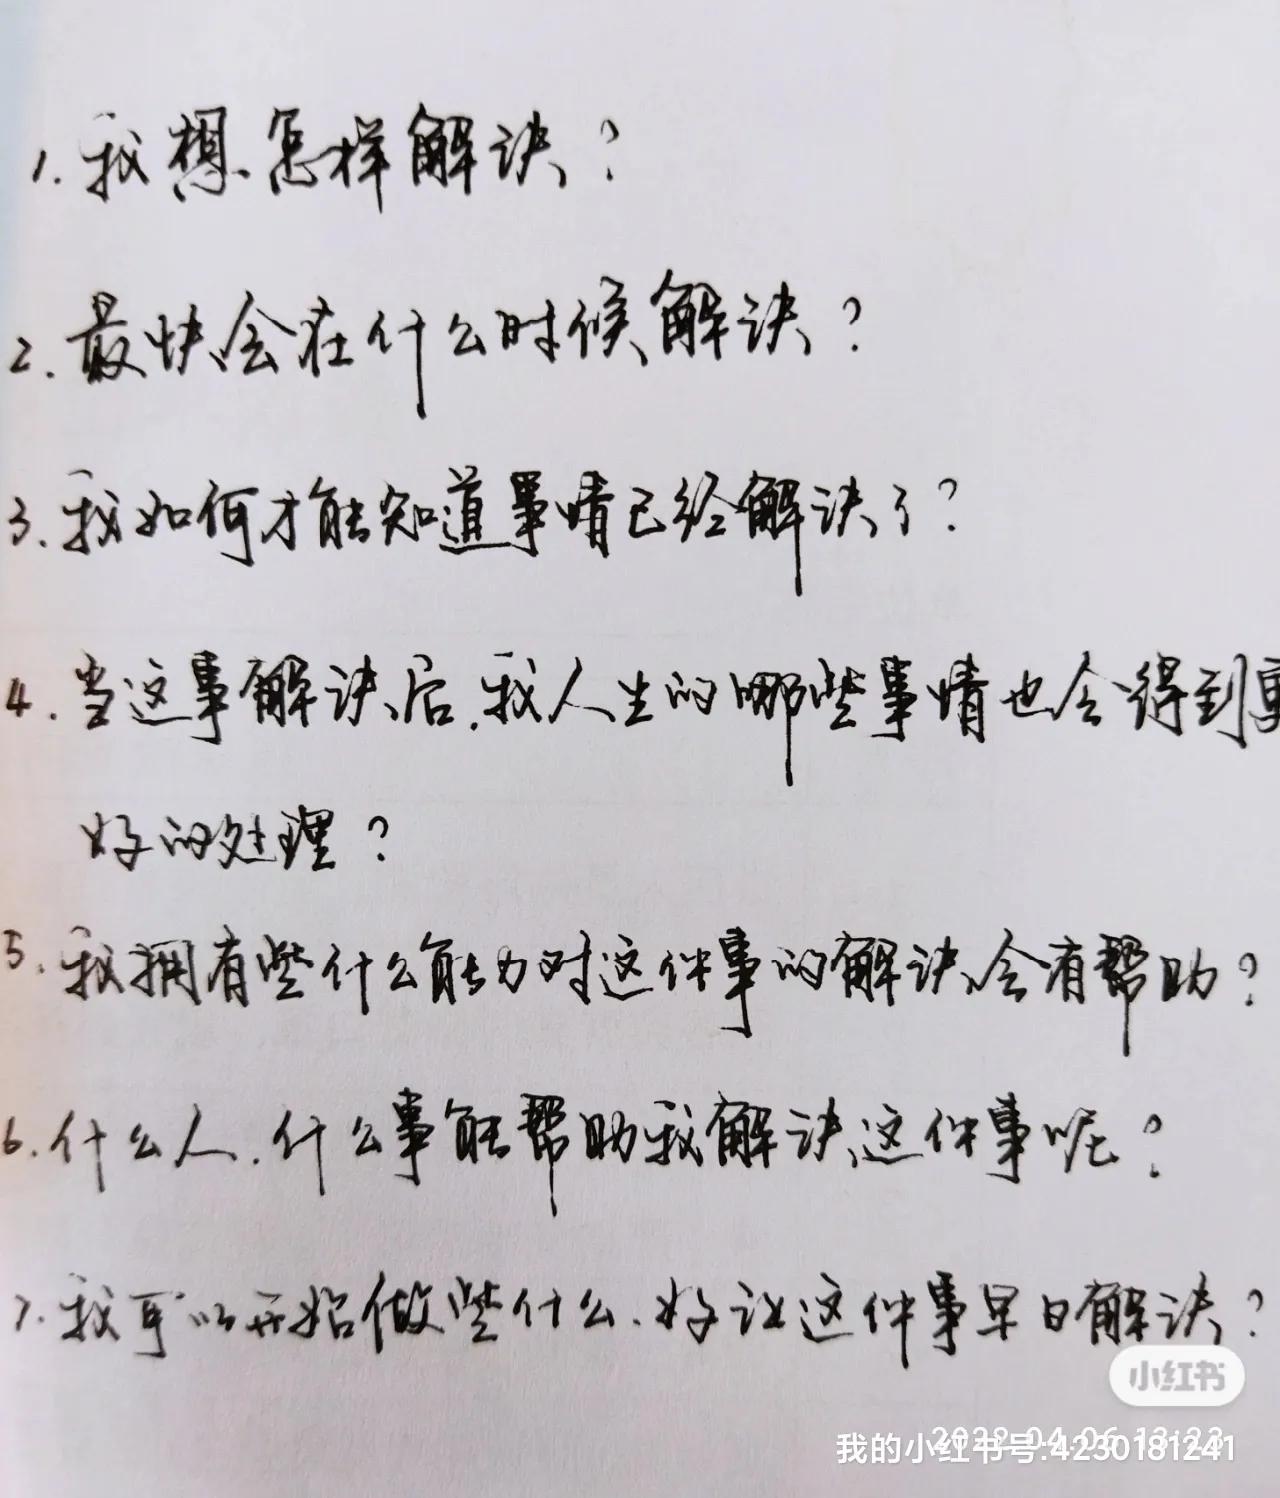 1. 我想怎样解决?
2. 最快会在什么时候解决?
3. 我如何才能知道事情已经解决了?
4. 当这事解决后,我人生的哪些事情也会得到更
好的处理?
5. 我拥有些什么能力对这件事的解决会有帮助?
6. 什么人.什么事能帮助我解决这件事呢?
7. 我可以开始做些什么.好让这件事早日解决?
小红书
2022.04.06 13:23
我的小红书号:4230181241